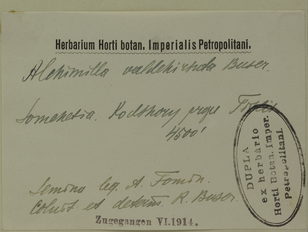 Herbarium Horti botan. Imperialis Petropolitani.
Alchimilla valdehirsuta Buser.
Somchetia. prope
4500'
Semina leg. A. Fomin.
Coluit et determ. R. Buser
Zugegangen VI.1914.
DUPLA
ex herbario
Horti Botan. Imper.
Petropolitani.